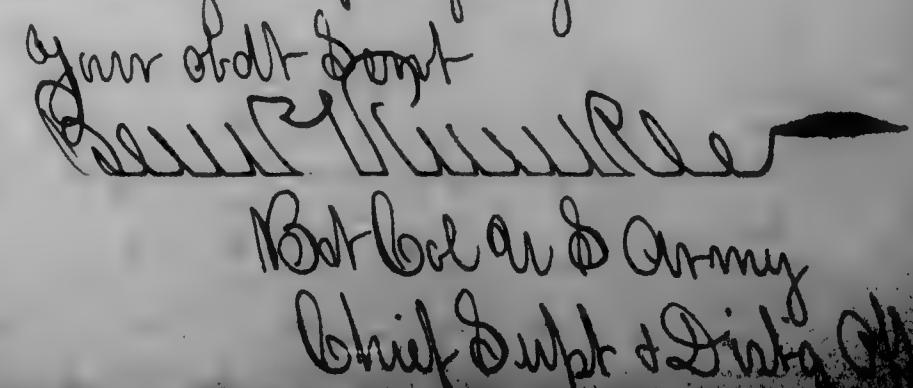 Your obdt Servt
Ben P Runkle
Bvt Col U S Army
Chief Supt & Disbg